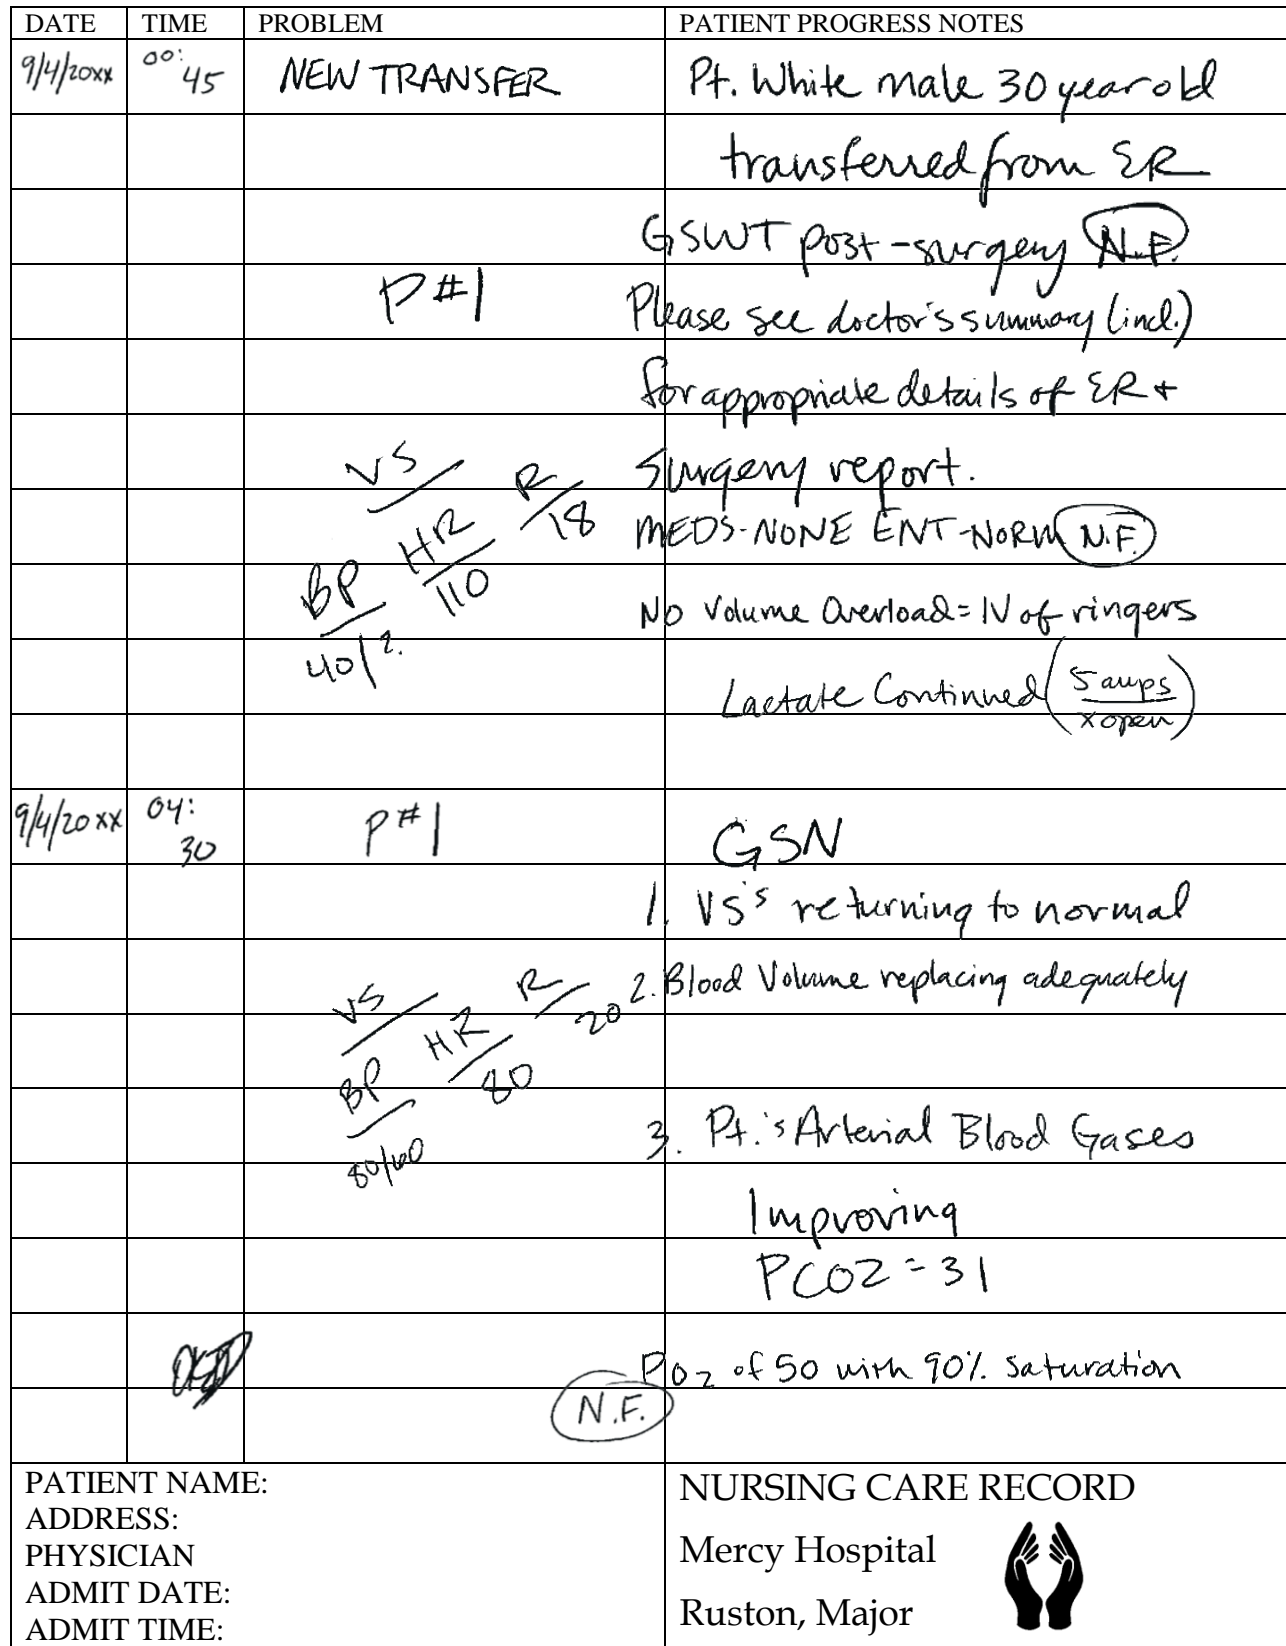 DATE TIME PROBLEM PATIENT PROGRESS NOTES
9/4/20xx 00:45 NEW TRANSFER Pt. White male 30 year old
transferred from ER
GSWT post-surgery N.F.
P#1 Please see doctor's summary (incl.)
for appropriate details of ER +
Surgery report.
VS
BP 40/?
HR 110
R 18
MEDS-NONE ENT-NORM N.F.
No Volume Overload = IV of ringers
Lactate Continued (5 amps / x open)
9/4/20xx 04:30 P#1 GSN
1. VS's returning to normal
2. Blood Volume replacing adequately
VS
BP 80/60
HR 80
R 20
3. Pt.'s Arterial Blood Gases
Improving
PCO2 = 31
PO2 of 50 with 90% saturation
N.F.
PATIENT NAME:
ADDRESS:
PHYSICIAN
ADMIT DATE:
ADMIT TIME:
NURSING CARE RECORD
Mercy Hospital
Ruston, Major